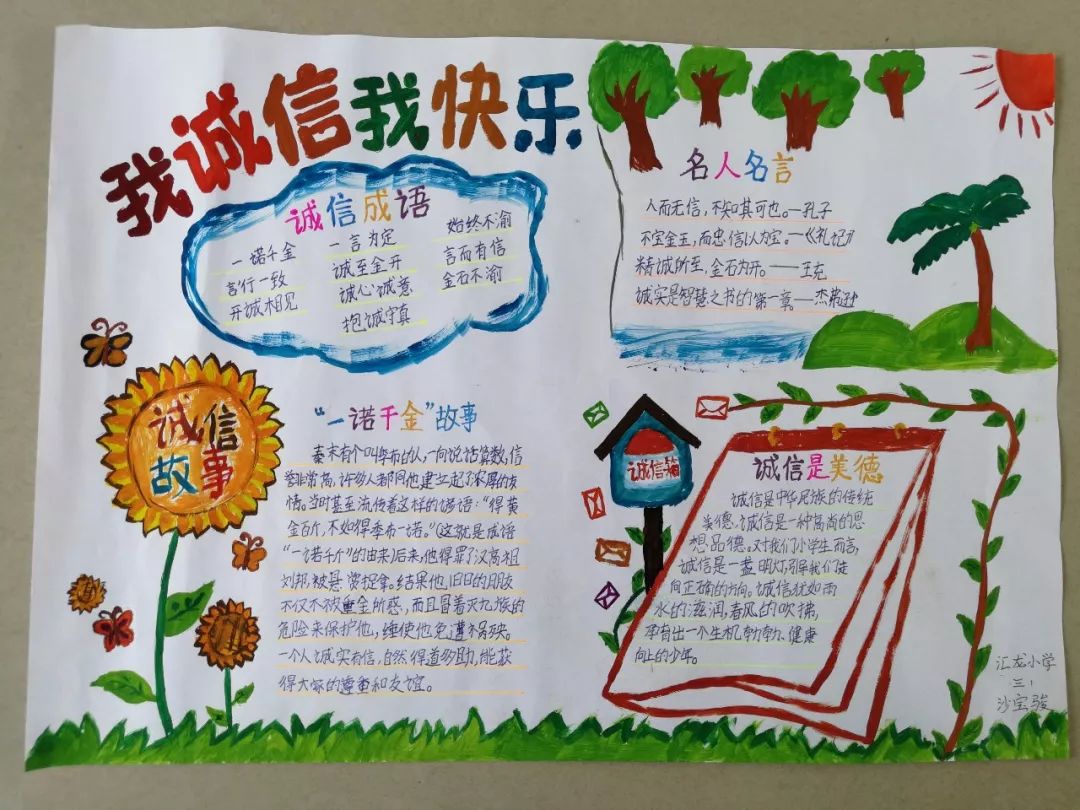 我诚信我快乐
诚信成语
一诺千金
言行一致
开诚相见
一言为定
诚至金开
诚心诚意
抱诚守真
始终不渝
言而有信
金石不渝
名人名言
人而无信，不知其可也。—孔子
不宝金玉，而忠信以为宝。—《礼记》
精诚所至，金石为开。——王充
诚实是智慧之书的第一章。—杰弗逊
诚信故事
“一诺千金”故事
秦末有个叫季布的人，一向说话算数，信
誉非常高，许多人都同他建立起了浓厚的友
情。当时甚至流传着这样的谚语：“得黄
金百斤，不如得季布一诺。”（这就是成语
“一诺千斤”的由来）后来，他得罪了汉高祖
刘邦，被悬赏捉拿。结果他旧日的朋友
不仅不被重金所惑，而且冒着灭九族的
危险来保护他，使他免遭祸殃。
一个人诚实有信，自然得道多助，能获
得大家的尊重和友谊。
诚信箱
诚信是美德
诚信是中华民族的传统
美德。诚信是一种高尚的思
想品德。对我们小学生而言，
诚信是一盏明灯，引导我们走
向正确的方向。诚信犹如雨
水的滋润，春风的吹拂，
孕育出一个生机勃勃、健康
向上的少年。
汇龙小学
三1
沙宝骏